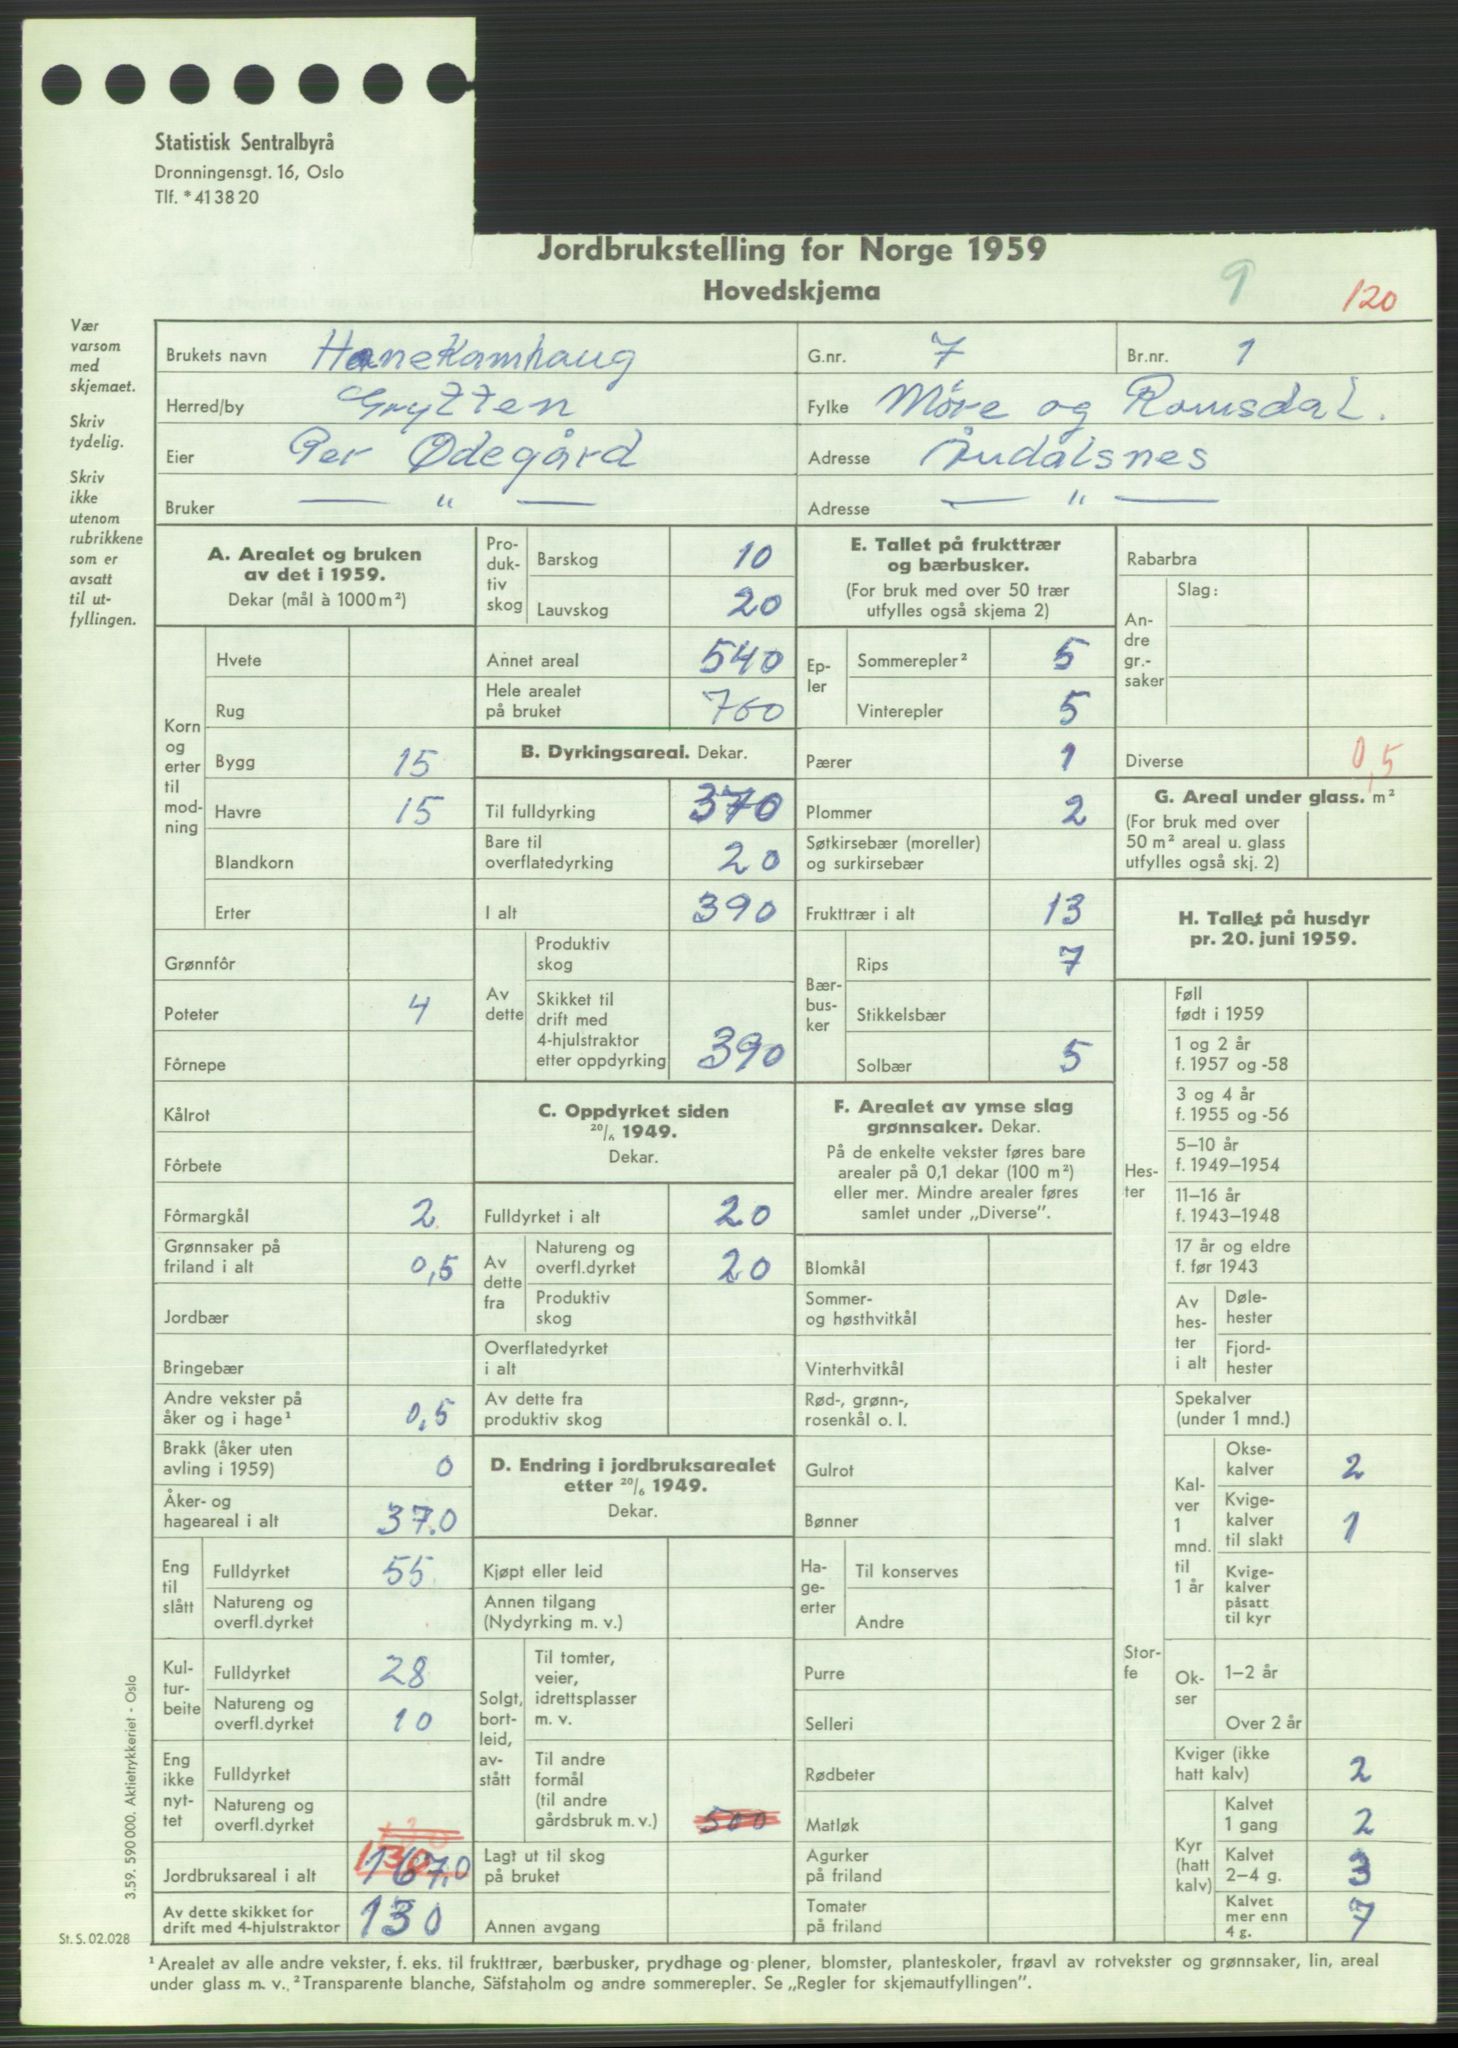 Statistisk Sentralbyrå
Dronningensgt. 16, Oslo
Tlf. * 41 38 20
Jordbrukstelling for Norge 1959
Hovedskjema
9
120
Vær
varsom
med
skjemaet.
Skriv
tydelig.
Skriv
ikke
utenom
rubrikkene
som er
avsatt
til ut-
fyllingen.
Brukets navn Hanekamhaug G.nr. 7 Br.nr. 1
Herred/by Grytten Fylke Möre og Romsdal.
Eier Per Ødegård Adresse Åndalsnes
Bruker — " — Adresse — " —
A. Arealet og bruken
av det i 1959.
Dekar (mål à 1000 m²)
Korn
og
erter
til
mod-
ning
Hvete
Rug
Bygg 15
Havre 15
Blandkorn
Erter
Grønnfôr
Poteter 4
Fôrnepe
Kålrot
Fôrbete
Fôrmargkål 2
Grønnsaker på
friland i alt 0,5
Jordbær
Bringebær
Andre vekster på
åker og i hage¹ 0,5
Brakk (åker uten
avling i 1959) 0
Åker- og
hageareal i alt 37.0
Eng
til
slått
Fulldyrket 55
Natureng og
overfl.dyrket
Kul-
tur-
beite
Fulldyrket 28
Natureng og
overfl.dyrket 10
Eng
ikke
nyt-
tet
Fulldyrket
Natureng og
overfl.dyrket
Jordbruksareal i alt 130
Av dette skikket for
drift med 4-hjulstraktor 130
Pro-
duk-
tiv
skog
Barskog 10
Lauvskog 20
Annet areal 540
Hele arealet
på bruket 760
B. Dyrkingsareal. Dekar.
Til fulldyrking 370
Bare til
overflatedyrking 20
I alt 390
Av
dette
Produktiv
skog
Skikket til
drift med
4-hjulstraktor
etter oppdyrking 390
C. Oppdyrket siden
20/6 1949.
Dekar.
Fulldyrket i alt 20
Av
dette
fra
Natureng og
overfl.dyrket 20
Produktiv
skog
Overflatedyrket
i alt
Av dette fra
produktiv skog
D. Endring i jordbruksarealet
etter 20/6 1949.
Dekar.
Kjøpt eller leid
Annen tilgang
(Nydyrking m. v.)
Solgt,
bort-
leid,
av-
stått
Til tomter,
veier,
idrettsplasser
m. v.
Til andre
formål
(til andre
gårdsbruk m. v.) 500
Lagt ut til skog
på bruket
Annen avgang
E. Tallet på frukttrær
og bærbusker.
(For bruk med over 50 trær
utfylles også skjema 2)
Ep-
ler
Sommerepler² 5
Vinterepler 5
Pærer 1
Plommer 2
Søtkirsebær (moreller)
og surkirsebær
Frukttrær i alt 13
Bær-
bus-
ker
Rips 7
Stikkelsbær
Solbær 5
F. Arealet av ymse slag
grønnsaker. Dekar.
På de enkelte vekster føres bare
arealer på 0,1 dekar (100 m²)
eller mer. Mindre arealer føres
samlet under „Diverse".
Blomkål
Sommer-
og høsthvitkål
Vinterhvitkål
Rød-, grønn-,
rosenkål o. l.
Gulrot
Bønner
Ha-
ge-
erter
Til konserves
Andre
Purre
Selleri
Rødbeter
Matløk
Agurker
på friland
Tomater
på friland
Rabarbra
An-
dre
gr.-
saker
Slag:
Diverse 0,5
G. Areal under glass. m²
(For bruk med over
50 m² areal u. glass
utfylles også skj. 2)
H. Tallet på husdyr
pr. 20. juni 1959.
Hes-
ter
Føll
født i 1959
1 og 2 år
f. 1957 og -58
3 og 4 år
f. 1955 og -56
5–10 år
f. 1949–1954
11–16 år
f. 1943–1948
17 år og eldre
f. før 1943
Av
hes-
ter
i alt
Døle-
hester
Fjord-
hester
Stor-
fe
Spekalver
(under 1 mnd.)
Kal-
ver
1
mnd.
til
1 år
Okse-
kalver 2
Kvige-
kalver
til slakt 1
Kvige-
kalver
påsatt
til kyr
Ok-
ser
1–2 år
Over 2 år
Kviger (ikke
hatt kalv) 2
Kyr
(hatt
kalv)
Kalvet
1 gang 2
Kalvet
2–4 g. 3
Kalvet
mer enn
4 g. 7
3.59. 590 000. Aktietrykkeriet - Oslo
St. S. 02.028
¹ Arealet av alle andre vekster, f. eks. til frukttrær, bærbusker, prydhage og plener, blomster, planteskoler, frøavl av rotvekster og grønnsaker, lin, areal
under glass m. v. ² Transparente blanche, Säfstaholm og andre sommerepler. Se „Regler for skjemautfyllingen".